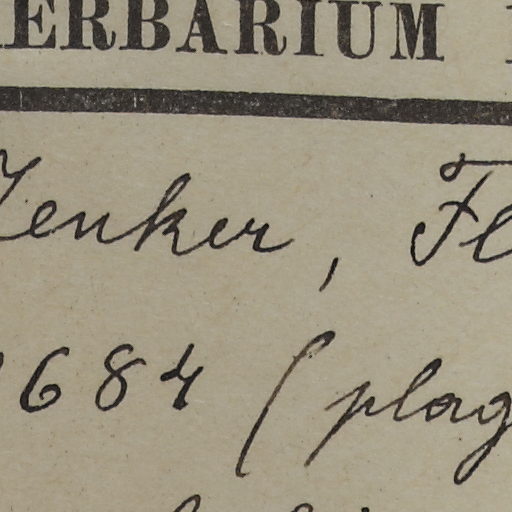 HERBARIUM
Zenker, Fl
684 (plag